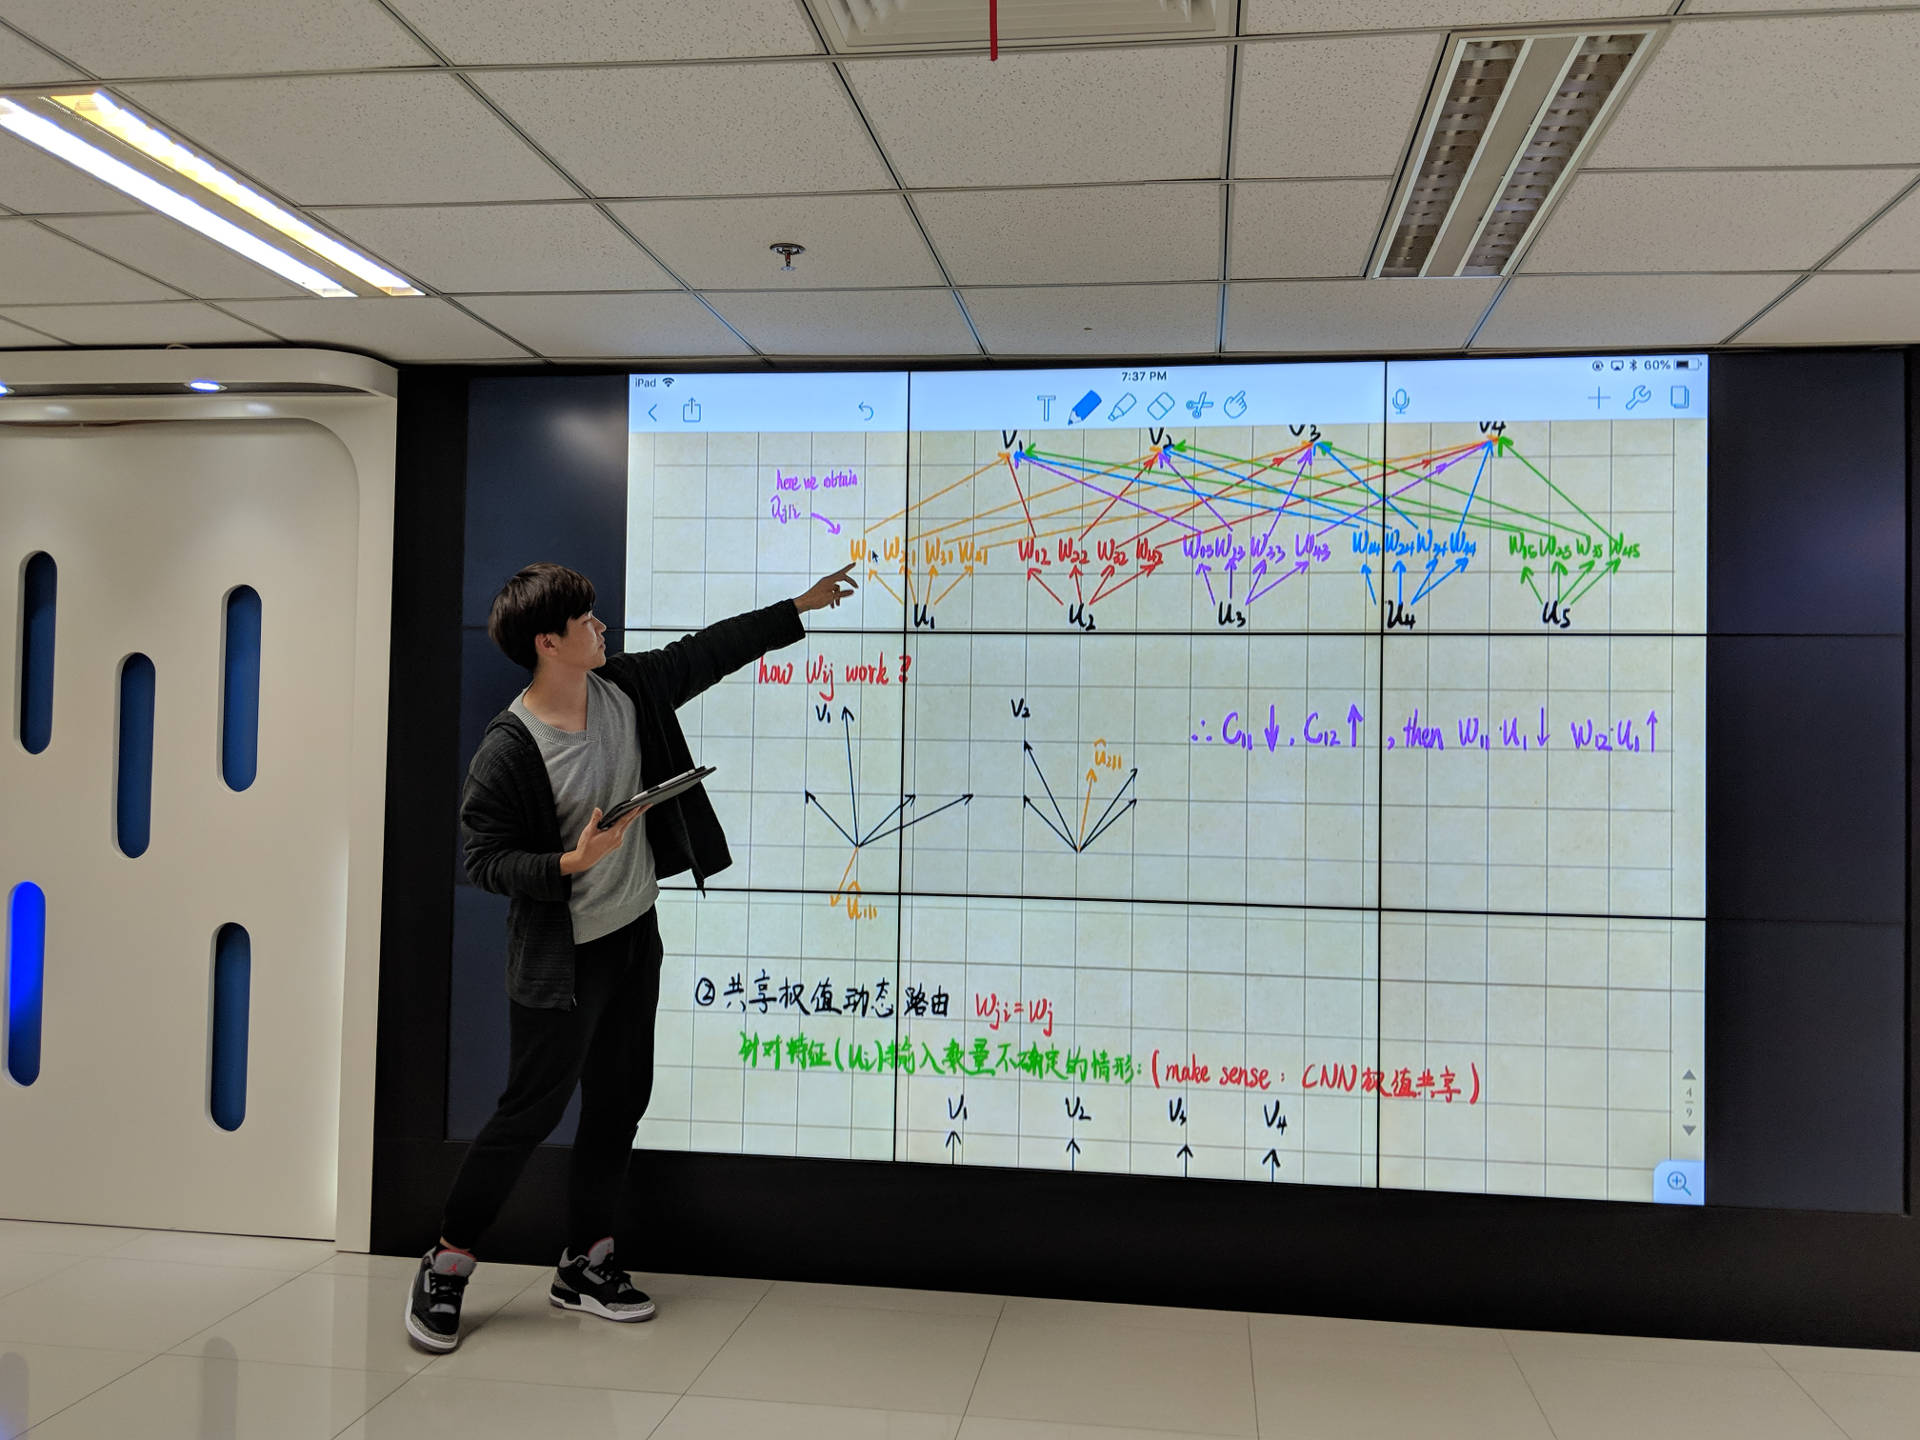 iPad 7:37 PM 60%
T
V1 V2 V3 V4
here we obtain
û j|i
W11 W21 W31 W41 W12 W22 W32 W42 W13 W23 W33 W43 W14 W24 W34 W44 W15 W25 W35 W45
u1 u2 u3 u4 u5
how Wij work?
V1 V2
û2|1
∴ C11↓, C12↑, then W11·U1↓ W12·U1↑
û1|1
②共享权值动态路由 Wji=Wj
针对特征(Ui)输入数量不确定的情形:(make sense: CNN权值共享)
4
9
V1 V2 V3 V4